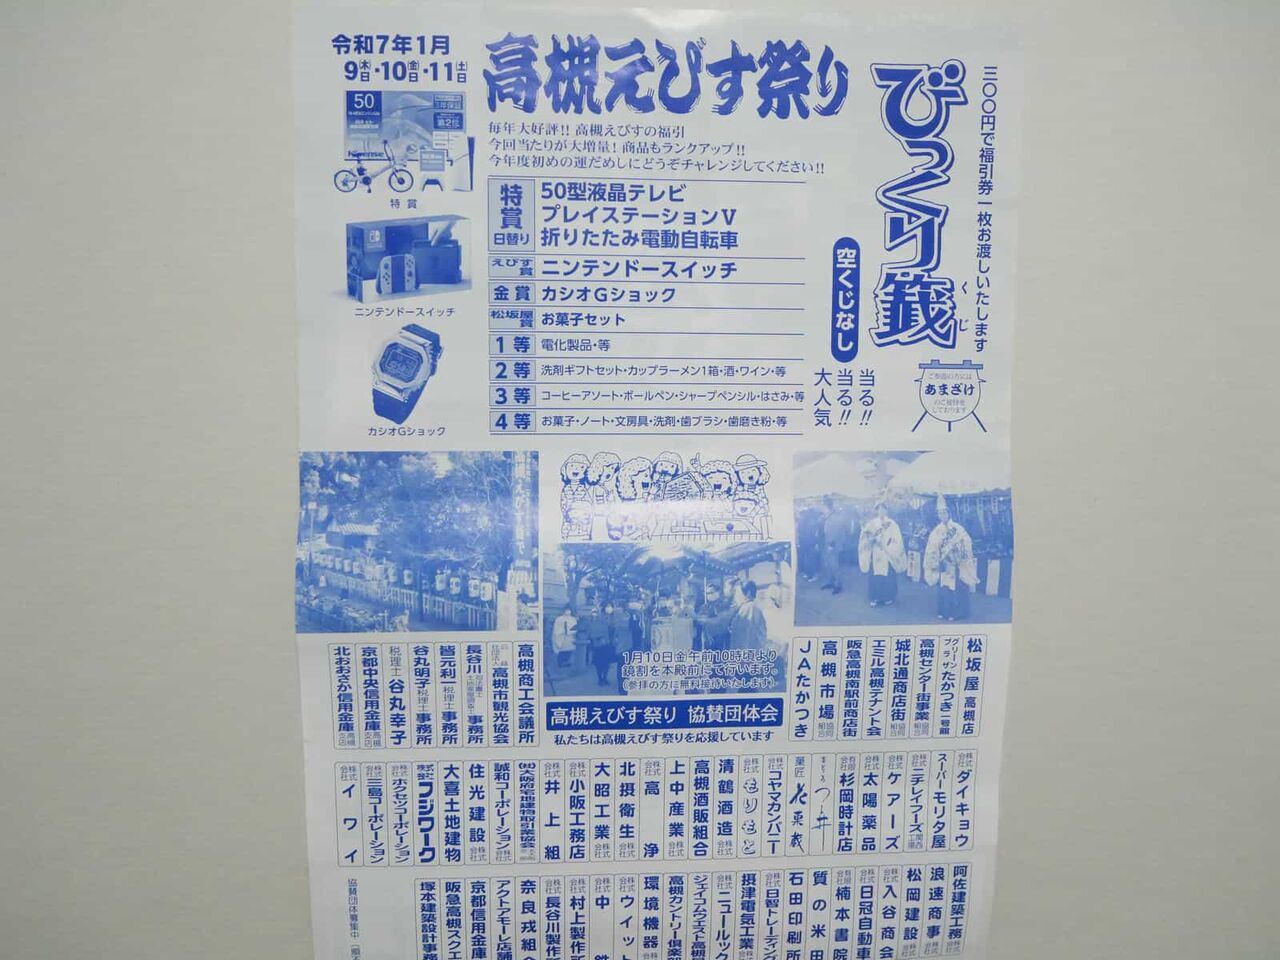 令和7年1月
9木日・10金日・11土日
高槻えびす祭り
びっくり籤
くじ
三〇〇円で福引券一枚お渡しいたします
空くじなし
当る!!
当る!!
大人気
ご参拝の方には
あまざけ
のご接待を
しております
50
特賞
ニンテンドースイッチ
カシオGショック
毎年大好評!! 高槻えびすの福引
今回当たりが大増量! 商品もランクアップ!!
今年度初めの運だめしにどうぞチャレンジしてください!!
特賞
日替り
50型液晶テレビ
プレイステーションV
折りたたみ電動自転車
えびす賞 ニンテンドースイッチ
金賞 カシオGショック
松坂屋賞 お菓子セット
1等 電化製品・等
2等 洗剤ギフトセット・カップラーメン1箱・酒・ワイン・等
3等 コーヒーアソート・ボールペン・シャープペンシル・はさみ・等
4等 お菓子・ノート・文房具・洗剤・歯ブラシ・歯磨き粉・等
1月10日金午前10時頃より
鏡割を本殿前にて行います。
(参拝の方に無料接待いたします)
高槻えびす祭り 協賛団体会
私たちは高槻えびす祭りを応援しています
松坂屋高槻店
グリーンプラザたかつき一号館
高槻センター街事業協同組合
城北通商店街
エミル高槻テナント会
阪急高槻南駅前商店街
高槻市場協同組合
JAたかつき
高槻商工会議所
高槻市観光協会
皆元利一税理士事務所
谷丸明子税理士事務所
税理士谷丸幸子
京都中央信用金庫高槻支店
北おおさか信用金庫高槻支店
株式会社ダイキョウ
スーパーモリタ屋
株式会社ニチレイフーズ関西工場
株式会社ケアーズ
太陽薬品株式会社
有限会社杉岡時計店
株式会社コヤマカンパニー
株式会社もりもと
清鶴酒造株式会社
高槻酒販組合
上中産業株式会社
株式会社高浄
北摂衛生株式会社
大昭工業株式会社
株式会社小阪工務店
株式会社井上組
誠和コーポレーション株式会社
住光建設株式会社
大喜土地建物
株式会社フジワーク
株式会社ホクセツコーポレーション
株式会社三島コーポレーション
株式会社イワイ
阿佐建築工務
浪速商事
松岡建設
入谷商会
日冠自動車
楠本書院
質の米田
石田印刷所
日智トレーディング
摂津電気工業
ニュールック
ジェイコムウエスト高槻
高槻カントリー倶楽部
環境機器
ウイット
村上製作所
長谷川製作所
奈良戎組
アクトアモーレ店舗
京都信用金庫
阪急高槻スクエ
塚本建築設計事務
協賛団体募集中